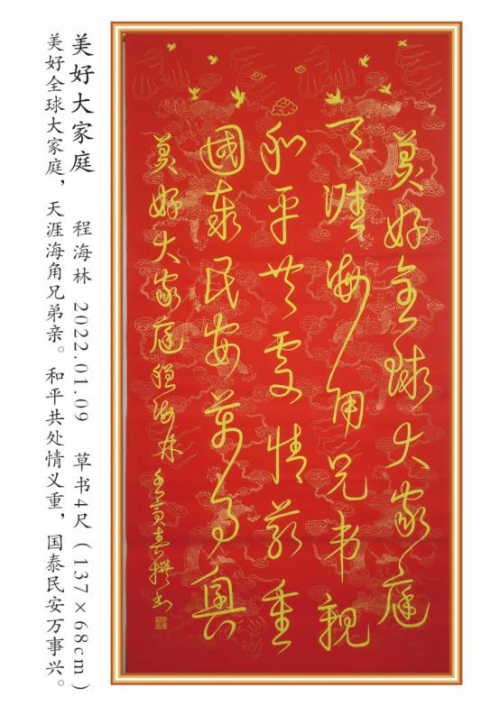 美好大家庭 程海林 2022.01.09 草书4尺（137×68cm）
美好全球大家庭，天涯海角兄弟亲。和平共处情义重，国泰民安万事兴。
美好全球大家庭
天涯海角兄弟親
和平共處情義重
國泰民安萬事興
美好大家庭程海林壬寅春撰书